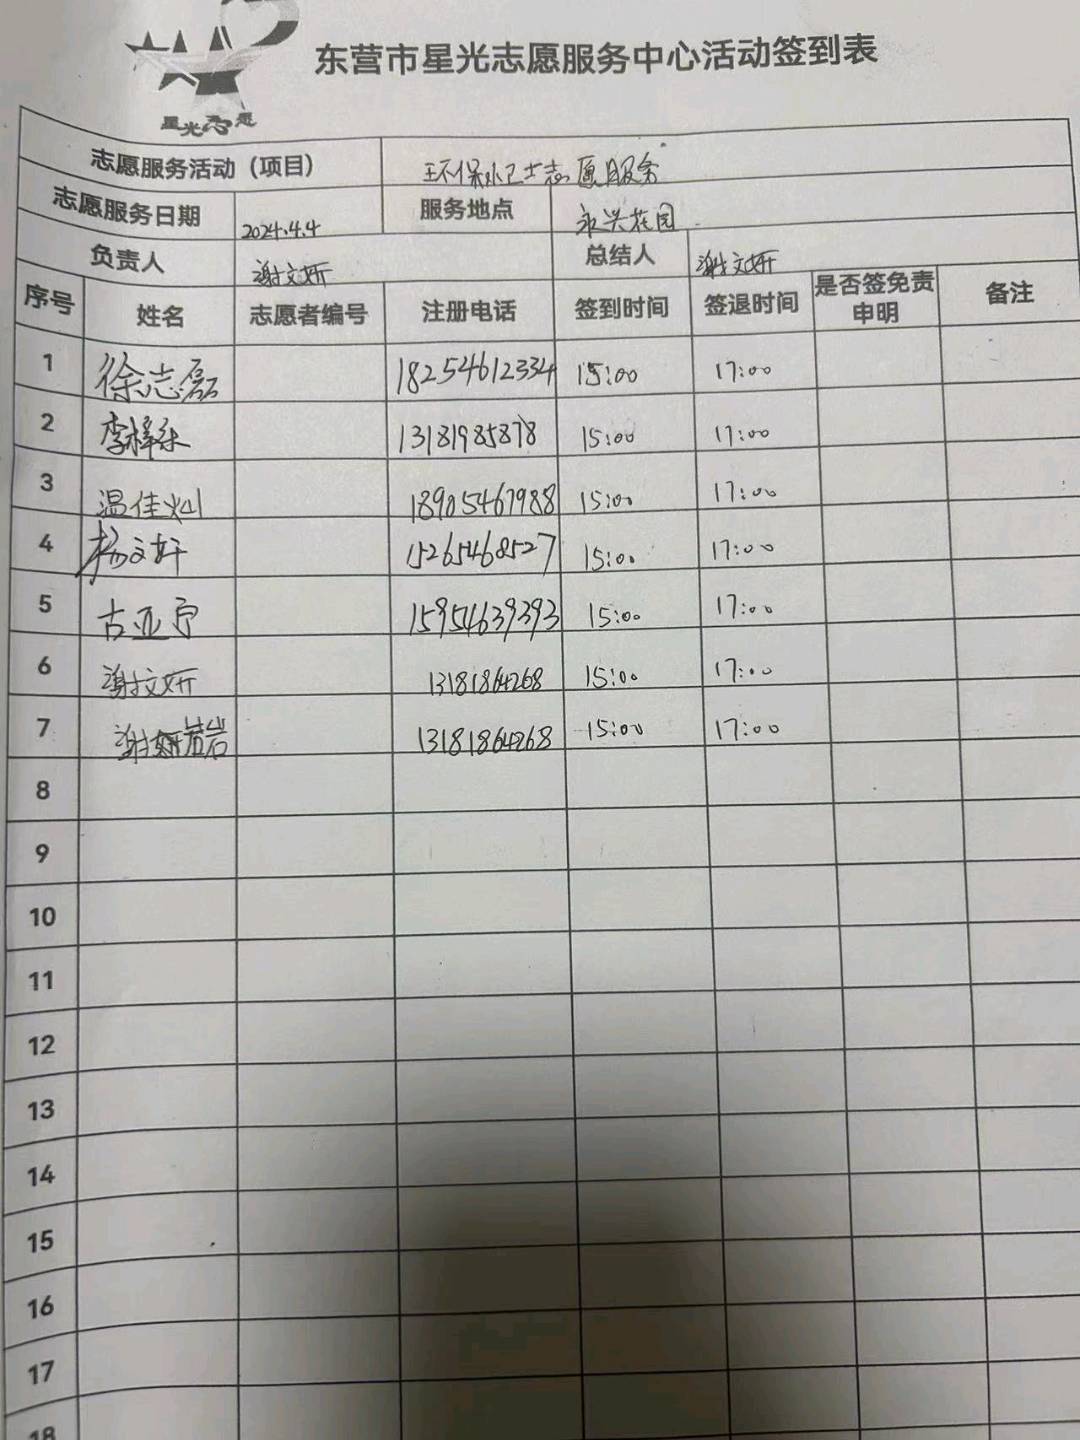 东营市星光志愿服务中心活动签到表
星光志愿
志愿服务活动（项目） 环保小卫士志愿服务
志愿服务日期 2024.4.4 服务地点 永兴花园
负责人 谢文妍 总结人 谢文妍
序号 姓名 志愿者编号 注册电话 签到时间 签退时间 是否签免责申明 备注
1 徐志磊 18254612334 15:00 17:00
2 李梓 13181985878 15:00 17:00
3 温佳灿 18905467988 15:00 17:00
4 杨文轩 15265468527 15:00 17:00
5 古亚宁 15954639393 15:00 17:00
6 谢文妍 13181864268 15:00 17:00
7 谢 茗岩 13181864268 15:00 17:00
8
9
10
11
12
13
14
15
16
17
18